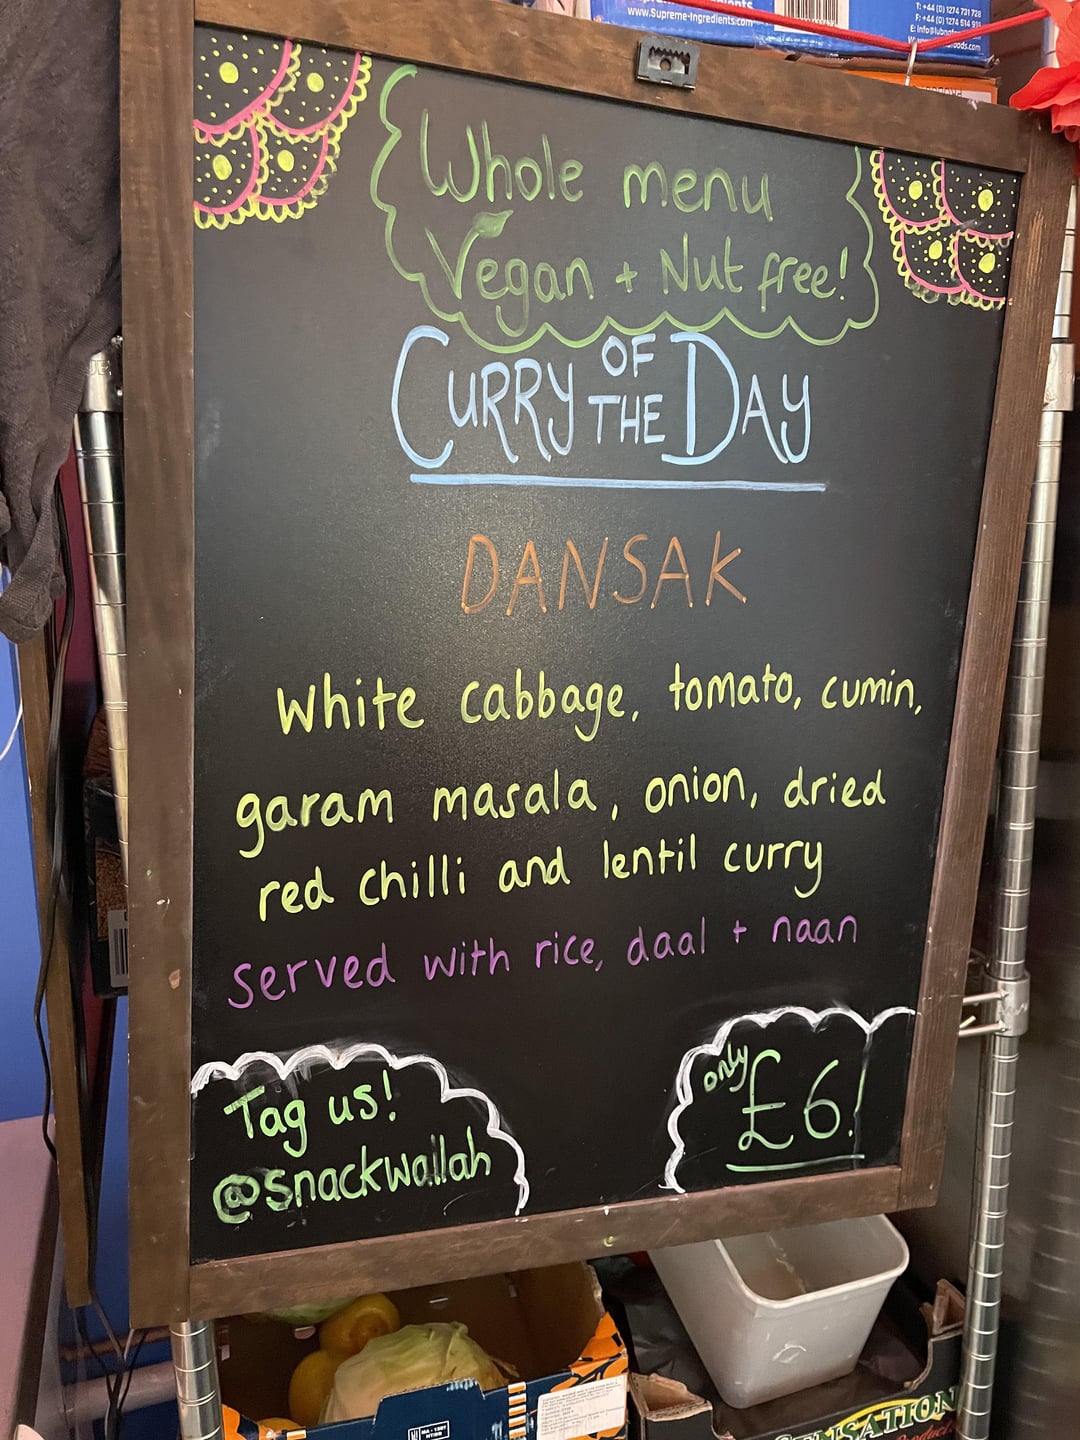 www.Supreme-Ingredients.com
T: +44 (0) 1274 731 728
Whole menu
Vegan + Nut free!
CURRY OF THE DAY
DANSAK
White cabbage, tomato, cumin,
garam masala, onion, dried
red chilli and lentil curry
served with rice, daal + naan
Tag us!
@snackwallah
only
£6!